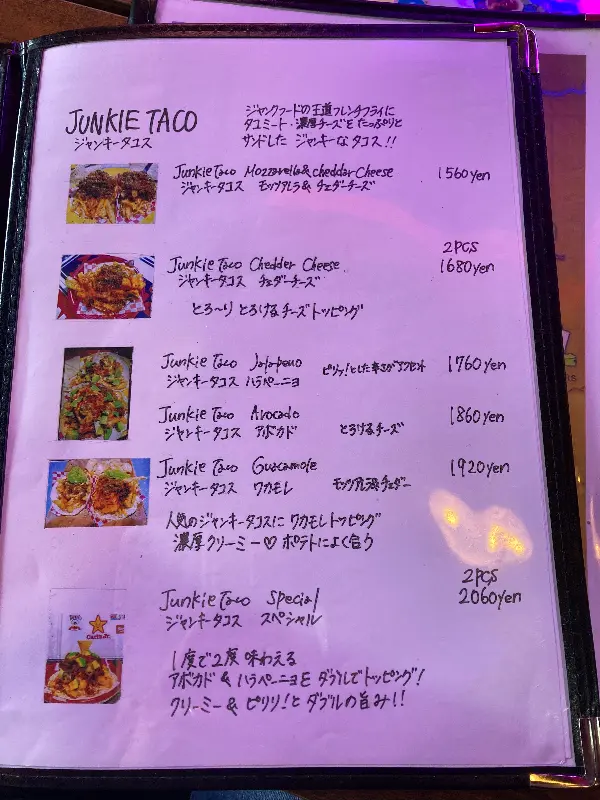 JUNKIE TACO
ジャンキータコス
ジャンクフードの王道フレンチフライに
タコミート・濃厚チーズをたっぷりと
サンドした ジャンキーなタコス!!
Junkie Taco Mozzarella & cheddar Cheese 1560yen
ジャンキータコス モッツアレラ & チェダーチーズ
2PCS
Junkie Taco Chedder Cheese 1680yen
ジャンキータコス チェダーチーズ
とろ〜り とろけるチーズトッピング
Junkie Taco Jalapeno ピリッ!とした辛さがアクセント 1760yen
ジャンキータコス ハラペーニョ
Junkie Taco Avocado 1860yen
ジャンキータコス アボカド とろけるチーズ
Junkie Taco Guacamole 1920yen
ジャンキータコス ワカモレ モッツアレラ チェダー
人気のジャンキータコスに ワカモレトッピング
濃厚クリーミー♡ ポテトによく合う
2PCS
Junkie Taco Special 2060yen
ジャンキータコス スペシャル
1度で2度 味わえる
アボカド & ハラペーニョを ダブルでトッピング!
クリーミー & ピリッ!と ダブルの旨み!!
Carl's Jr.